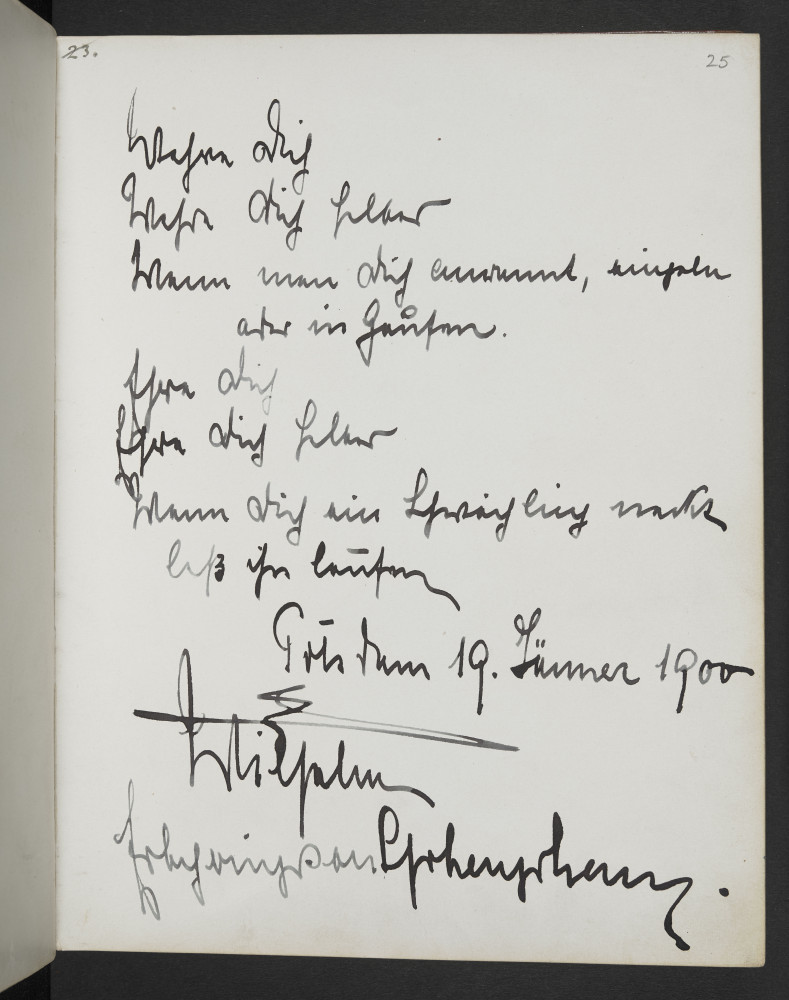 23.
25
Wehre Dich
Wehre Dich selber
Wenn man Dich anrennt, einzeln
oder in Haufen.
Ehre Dich
Ehre Dich selber
Wenn Dich ein Schwächling neckt
laß ihn laufen
Potsdam 19. Jänner 1900
Wilhelm
Erbprinz von